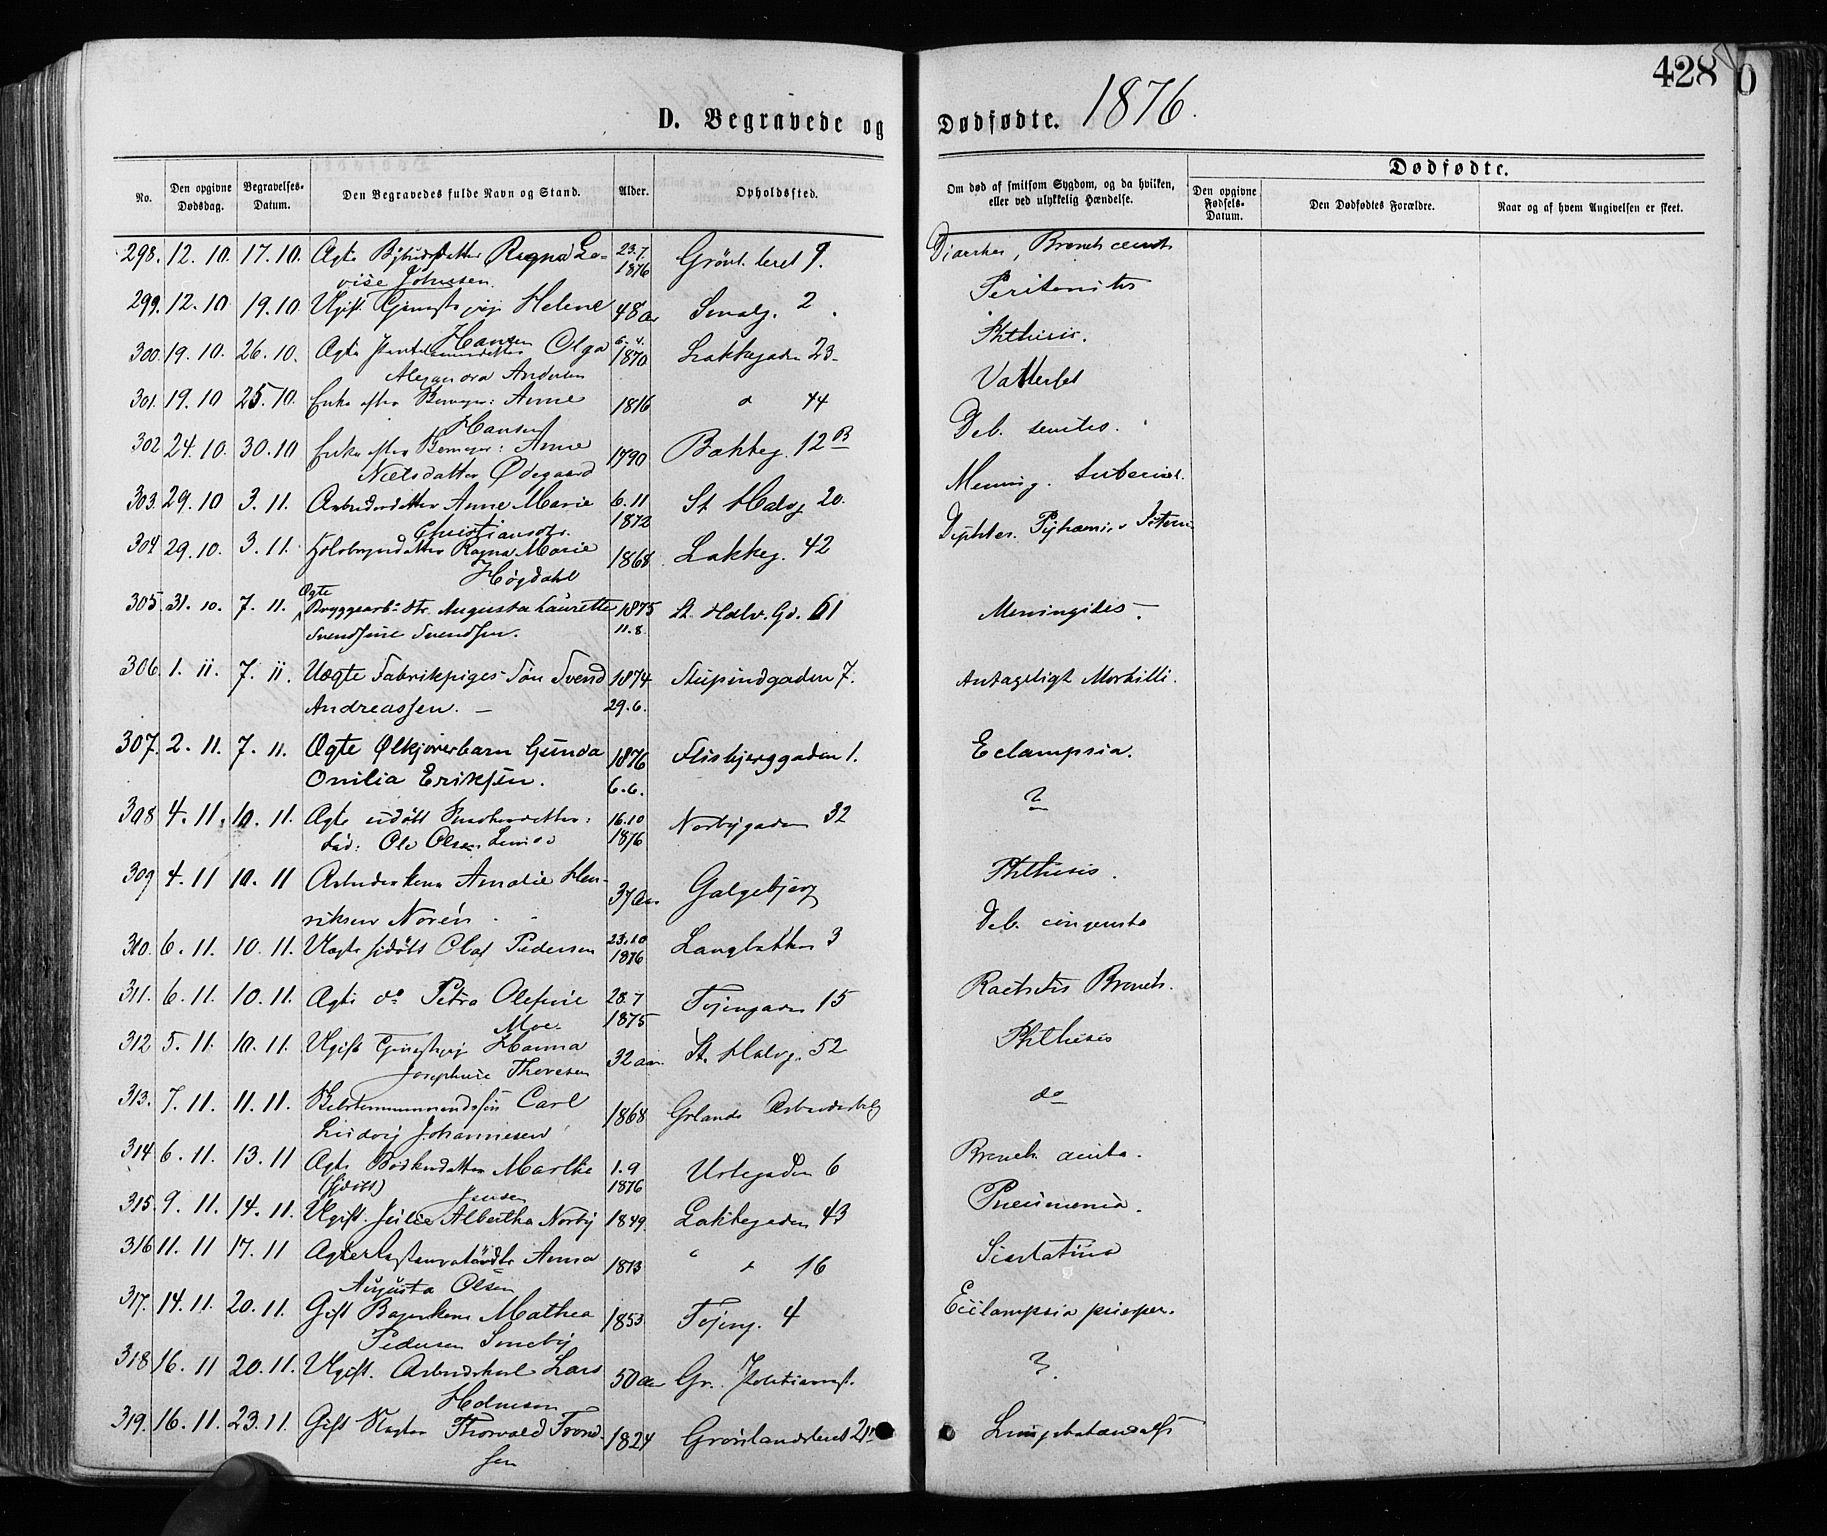 428
0
D. Begravede og Dødfødte. 1876.
No. Den opgivne Dødsdag. Begravelses-Datum. Den Begravedes fulde Navn og Stand. Alder. Opholdssted. Om død af smitsom Sygdom, og da hvilken, eller ved ulykkelig Hændelse. Dødfødte. Den opgivne Fødsels-Datum. Den Dødfødtes Forældre. Naar og af hvem Angivelsen er skeet.
298. 12. 10. 17. 10. Ragna Lo- 23. 7. 9.
vise Johnsen. 1876
299. 12. 10 19. 10. Ugift Helene 48 2. Peritonitis
Hansen 6. 4.
300. 19. 10. 26. 10. Ægte Olga 1870 Lakkegaden 23 Phthisis.
Alexandra Andersen
301. 19. 10 25. 10. Enke efter Anne 1816 44 Vattersot
Hansen
302 24. 10. 30. 10 Enke efter Anne 1790 Bakkeg. 12 B Deb. senilis.
Nielsdatter Ødegaard
303. 29. 10 3. 11. Arbeiderdatter Anne Marie 6. 11 St. Halvg 20. Mening. tubercul.
Christiansdtr. 1872
304 29. 10. 3. 11. Ragna Marie 1868 Lakkeg. 42 Diphter.
Høgdahl
Ægte
305 31. 10. 7. 11. Bryggearb. Dtr. Augusta Laurette 1875 St. Halv. Gd. 61 Meningites
Svendsine Svendsen. 11. 8.
306. 1. 11. 7. 11. Uægte Fabrikpiges Søn Svend 1874 Stupindgaden 7. Antageligt Morbilli.
Andreassen. 29. 6.
307. 2. 11. 7. 11. Ægte Ølkjørerbarn Gunda 1876 Flisbjerggaden 1. Eclampsia.
Onilia Eriksen. 6. 6.
308 4. 11. 10. 11. Ægte udøbt Snekkerdatter: 16. 10 Norbygaden 32 ?
Fad: Ole Olsen 1876
309 4. 11 10. 11 Arbeiderkone Amalie Hen- 37 Galgebjerg Phthisis.
riksen Norén
310. 6. 11. 10. 11. Uægte hjdøbt Olaf Pedersen 23. 10 Langbakken 3 Deb. congenita
1876
311. 6. 11. 10. 11. Ægte do Petra Olefine 28. 7 Tøiengaden 15 Rachitis Bronch.
Moe. 1875
312 5. 11. 10. 11. Ugift Hanna 32 St. Halvg. 52 Phthisis
Josephine Thoresen
313. 7. 11. 11. 11. Carl 1868 Grlands do
Ludvig Johannesen
314 6. 11. 13. 11 Ægte Bødkerdatter Marthe 1. 9 Urtegaden 6 Bronch. acuta.
(hjdøbt) Jensen 1876
315. 9. 11. 14. 11. Ugift. Julie Albertha Norby 1849. Lakkegaden 43 Pneumonia.
316 11. 11 17. 11 Anna 1873 " 16 Scarlatina
Augusta Olsen
317. 14. 11. 20. 11. Gift Bagerkone Mathea 1853 Tøjeng. 4 Ecclampsia puerper.
Pedersen
318 16. 11 20. 11. Ugift. Arbeidskarl Lars 50 Gr. ?
Holmesen
319. 16. 11. 23. 11. Gift Thorvald Trond- 1824 Grønlandsleret Lungebetændelse
sen